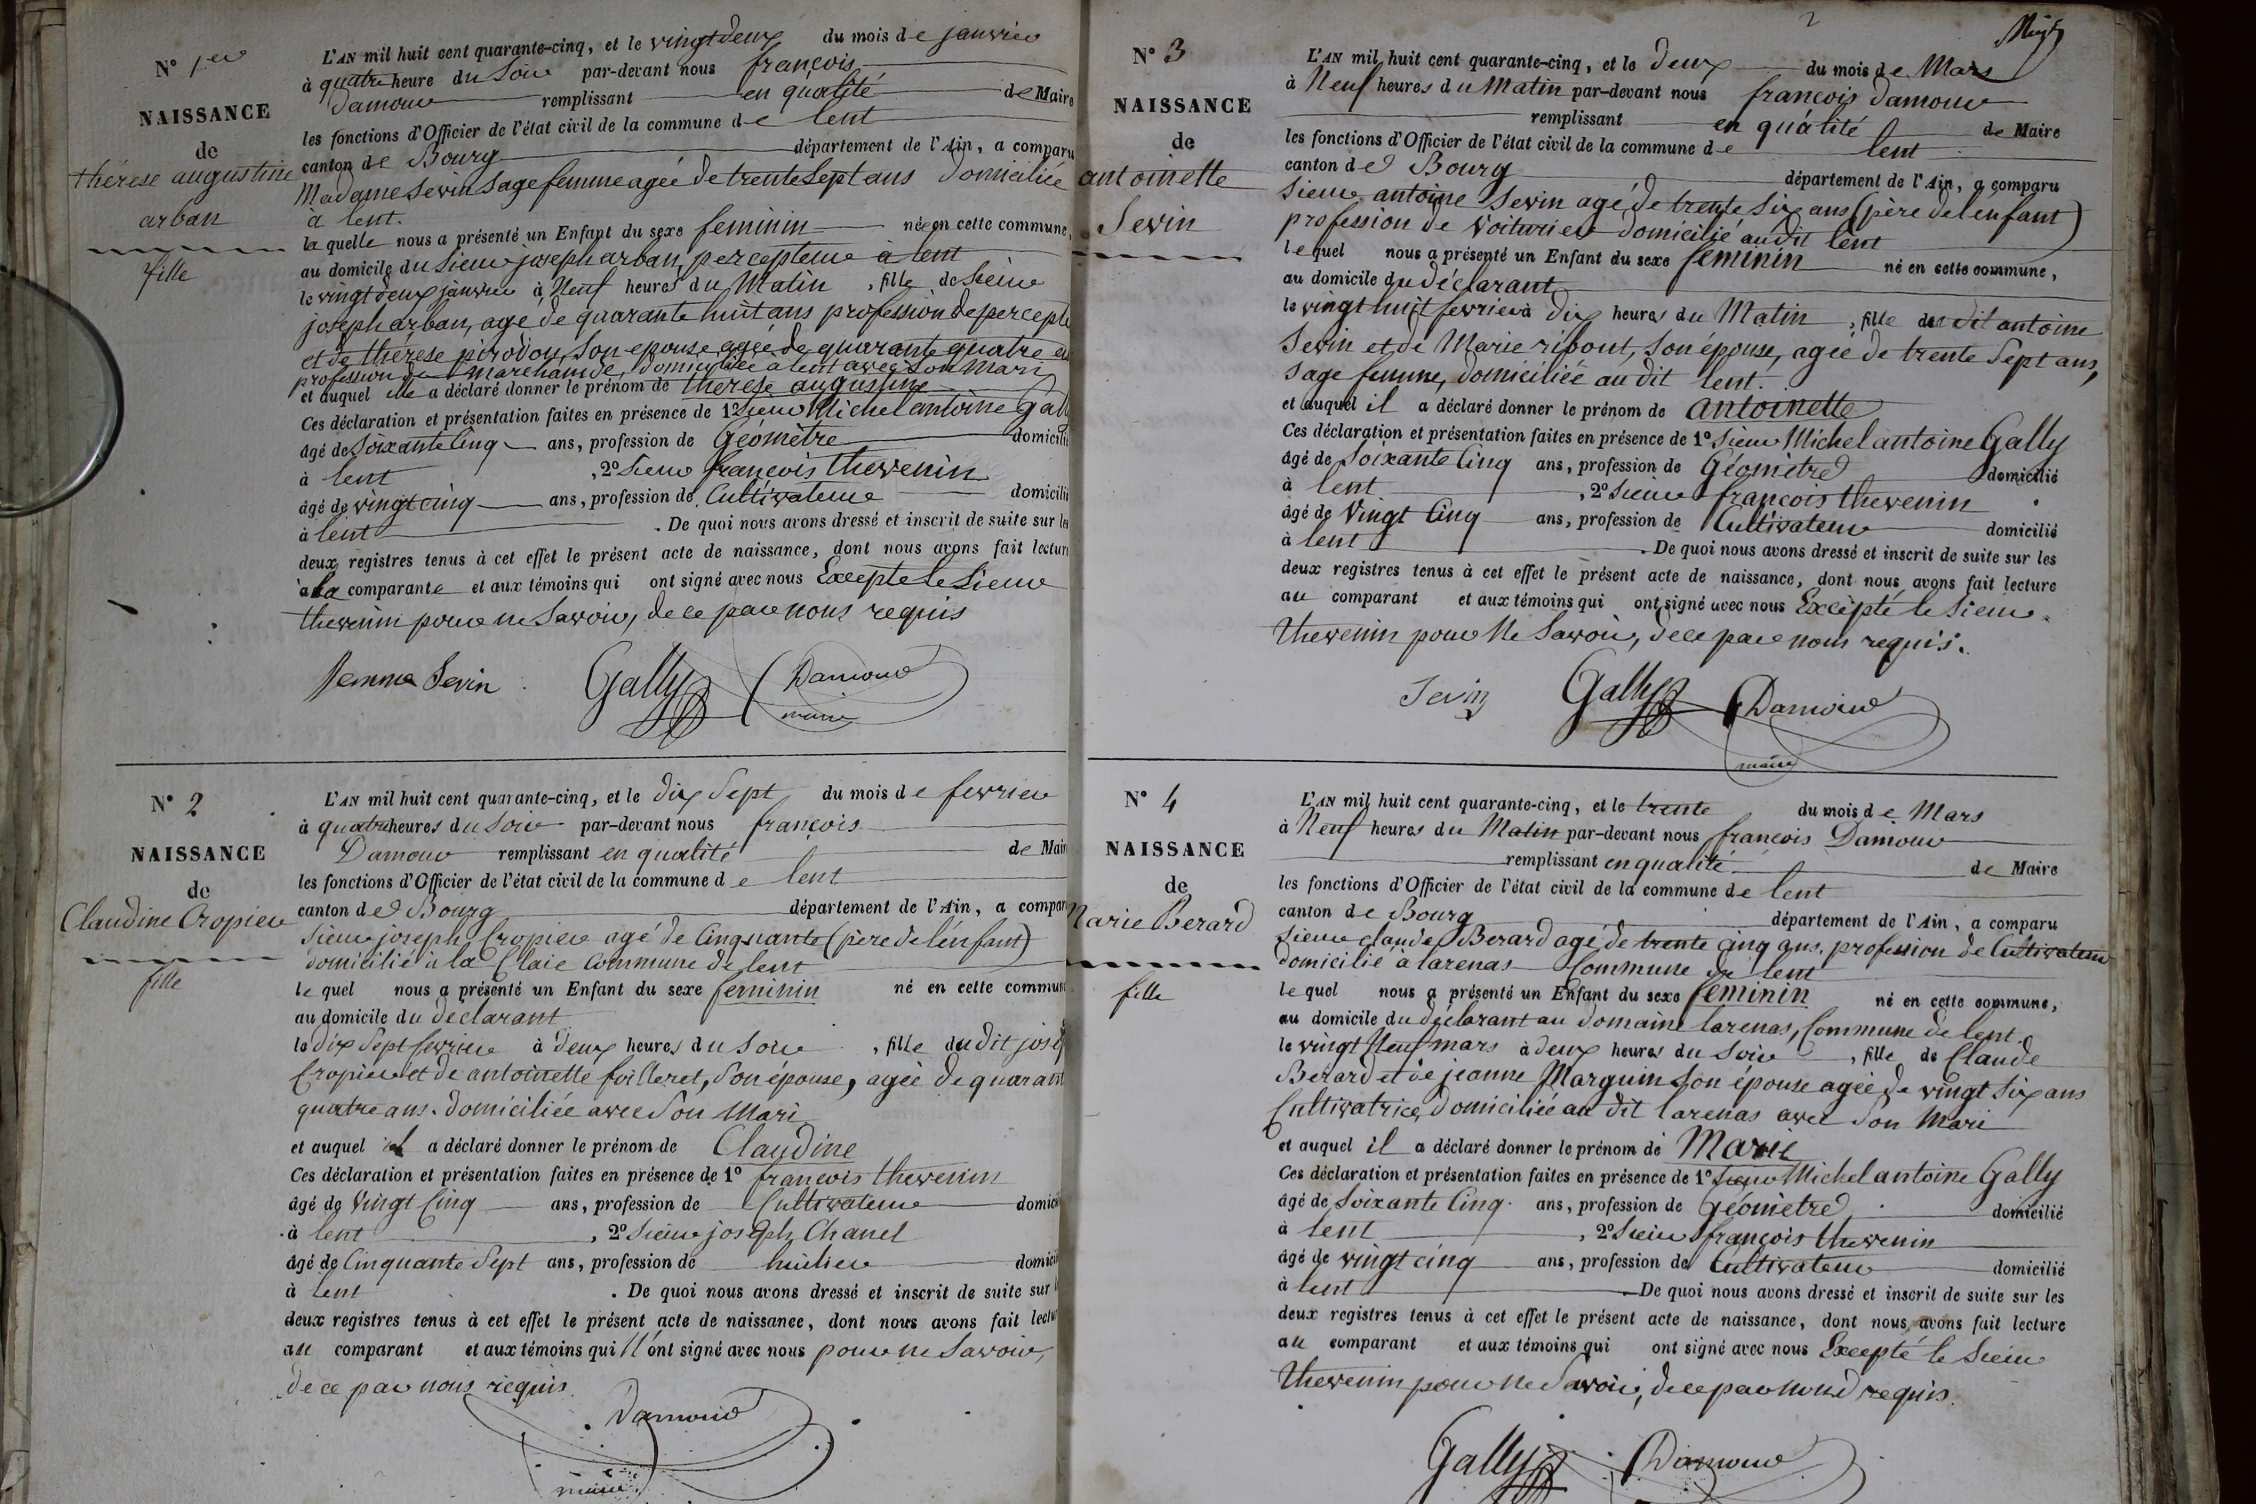 N° 1er
NAISSANCE
de
thérèse augustine
arban
fille
L'AN mil huit cent quarante-cinq, et le vingt deux du mois de janvier
à quatre heure du Soir par-devant nous françois
Damour remplissant en qualité de Maire
les fonctions d'Officier de l'état civil de la commune de lent
canton de Bourg département de l'Ain, a comparu
Madame Sevin Sage femme agée de trente Sept ans Domiciliée
à lent.
la quelle nous a présenté un Enfant du sexe feminin née en cette commune,
au domicile du Sieur joseph arban, percepteur à lent
le vingt deux janvier à Neuf heures du Matin, fille de Sieur
joseph arban, agé de quarante huit ans profession de percept
et de thérèse pirodon, Son epouse agée de quarante quatre
profession de Marchande, Domiciliée à lent avec Son Mari
et auquel elle a déclaré donner le prénom de thérèse augustine
Ces déclaration et présentation faites en présence de 1° Sieur Michel antoine Gall
âgé de Soixante Cinq ans, profession de Géomètre domicilié
à lent, 2° Sieur françois thevenin
âgé de vingt cinq ans, profession de Cultivateur domicilié
à lent. De quoi nous avons dressé et inscrit de suite sur les
deux registres tenus à cet effet le présent acte de naissance, dont nous avons fait lecture
à la comparante et aux témoins qui ont signé avec nous Excepté le Sieur
thevenin pour ne Savoir, de ce par nous requis
femme Sevin Gally Damour
maire
N° 2
NAISSANCE
de
Claudine Cropier
fille
L'AN mil huit cent quarante-cinq, et le dix Sept du mois de fevrier
à quatre heures du Soir par-devant nous françois
Damour remplissant en qualité de Maire
les fonctions d'Officier de l'état civil de la commune de lent
canton de Bourg département de l'Ain, a compar
Sieur joseph Cropier agé de Cinquante (père de l'énfant)
domicilié à la Claie Commune de lent
le quel nous a présenté un Enfant du sexe feminin né en cette commune
au domicile du déclarant
le dix Sept fevrier à deux heures du Soir, fille du dit josep
Cropier et de antoinette foilleret, Son épouse, agée de quarant
quatre ans. domiciliée avec Son Mari
et auquel il a déclaré donner le prénom de Claudine
Ces déclaration et présentation faites en présence de 1° françois thevenin
âgé de Vingt Cinq ans, profession de Cultivateur domicilié
à lent, 2° Sieur joseph Chanel
âgé de Cinquante Sept ans, profession de huilier domicilié
à lent. De quoi nous avons dressé et inscrit de suite sur
deux registres tenus à cet effet le présent acte de naissance, dont nous avons fait lectu
au comparant et aux témoins qui N'ont signé avec nous pour ne Savoir,
de ce par nous requis
Damour
maire
2
N° 3
NAISSANCE
de
antoinette
Sevin
L'AN mil huit cent quarante-cinq, et le deux du mois de Mars
à Neuf heures du Matin par-devant nous françois Damour
remplissant en qualité de Maire
les fonctions d'Officier de l'état civil de la commune de lent
canton de Bourg département de l'Ain, a comparu
Sieur antoine Sevin agé de trente Six ans (père de l'enfant)
profession de Voiturier domicilié au dit lent
le quel nous a présenté un Enfant du sexe feminin né en cette commune,
au domicile du déclarant
le vingt huit fevrier à dix heures du Matin, fille du dit antoine
Sevin et de Marie ripout, Son épouse, agée de trente Sept ans,
Sage femme, domiciliée au dit lent.
et auquel il a déclaré donner le prénom de antoinette
Ces déclaration et présentation faites en présence de 1° Sieur Michel antoine Gally
âgé de Soixante Cinq ans, profession de Géomètre domicilié
à lent, 2° Sieur françois thevenin
âgé de Vingt Cinq ans, profession de Cultivateur domicilié
à lent. De quoi nous avons dressé et inscrit de suite sur les
deux registres tenus à cet effet le présent acte de naissance, dont nous avons fait lecture
au comparant et aux témoins qui ont signé avec nous Excepté le Sieur
thevenin pour Ne Savoir, de ce par nous requis.
Sevin Gally Damour
maire
N° 4
NAISSANCE
de
Marie Berard
fille
L'AN mil huit cent quarante-cinq, et le trente du mois de Mars
à Neuf heures du Matin par-devant nous françois Damour
remplissant en qualité de Maire
les fonctions d'Officier de l'état civil de la commune de lent
canton de Bourg département de l'Ain, a comparu
Sieur claude Berard agé de trente cinq ans, profession de Cultivateur
domicilié à larenas Commune de lent
le quel nous a présenté un Enfant du sexe feminin né en cette commune,
au domicile du déclarant au domaine larenas, Commune de lent
le vingt Neuf mars à deux heures du Soir, fille de Claude
Berard et de jeanne Marguin Son épouse agée de vingt Six ans
Cultivatrice, domiciliée au dit larenas avec Son Mari
et auquel il a déclaré donner le prénom de Marie
Ces déclaration et présentation faites en présence de 1° Sieur Michel antoine Gally
âgé de Soixante Cinq ans, profession de Géomètre domicilié
à lent, 2° Sieur françois thevenin
âgé de vingt cinq ans, profession de Cultivateur domicilié
à lent De quoi nous avons dressé et inscrit de suite sur les
deux registres tenus à cet effet le présent acte de naissance, dont nous avons fait lecture
au comparant et aux témoins qui ont signé avec nous Excepté le Sieur
thevenin pour Ne Savoir, de ce par nous requis.
Gally Damour